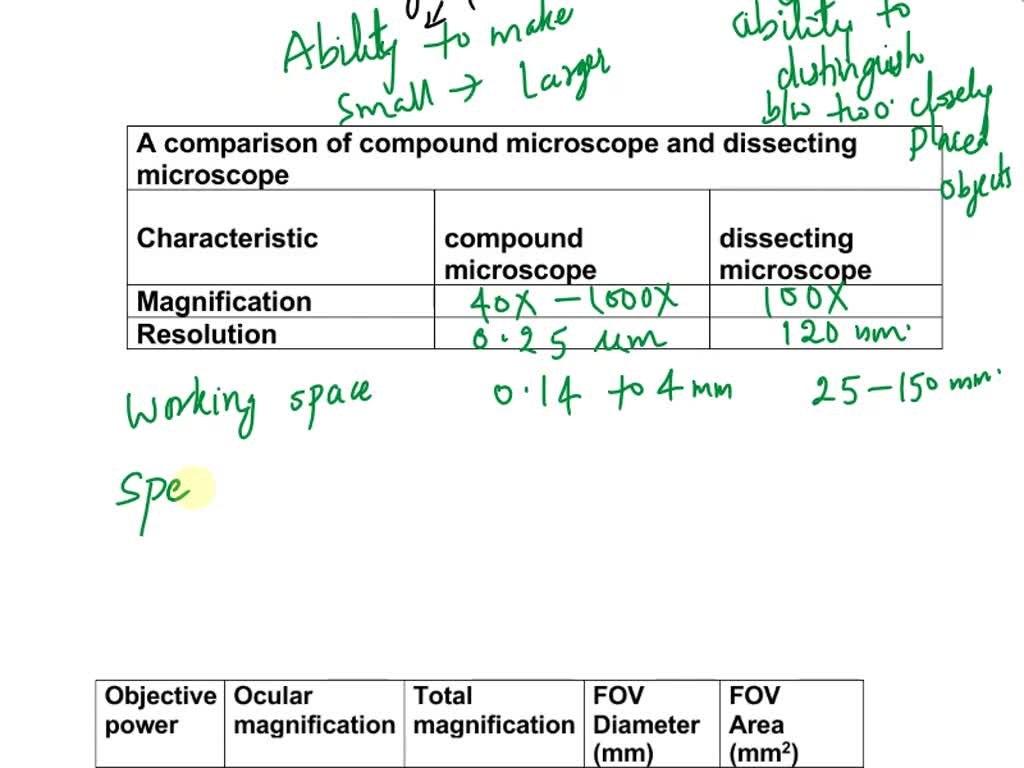 Ability to make
small → Larger
ability to
distinguish
b/w two closely
placed
objects
A comparison of compound microscope and dissecting
microscope
Characteristic compound microscope dissecting microscope
Magnification 40X – 1000X 100X
Resolution 0.25 μm 120 nm.
Working space 0.14 to 4 mm 25 – 150 mm.
Spe
Objective power Ocular magnification Total magnification FOV Diameter (mm) FOV Area (mm²)